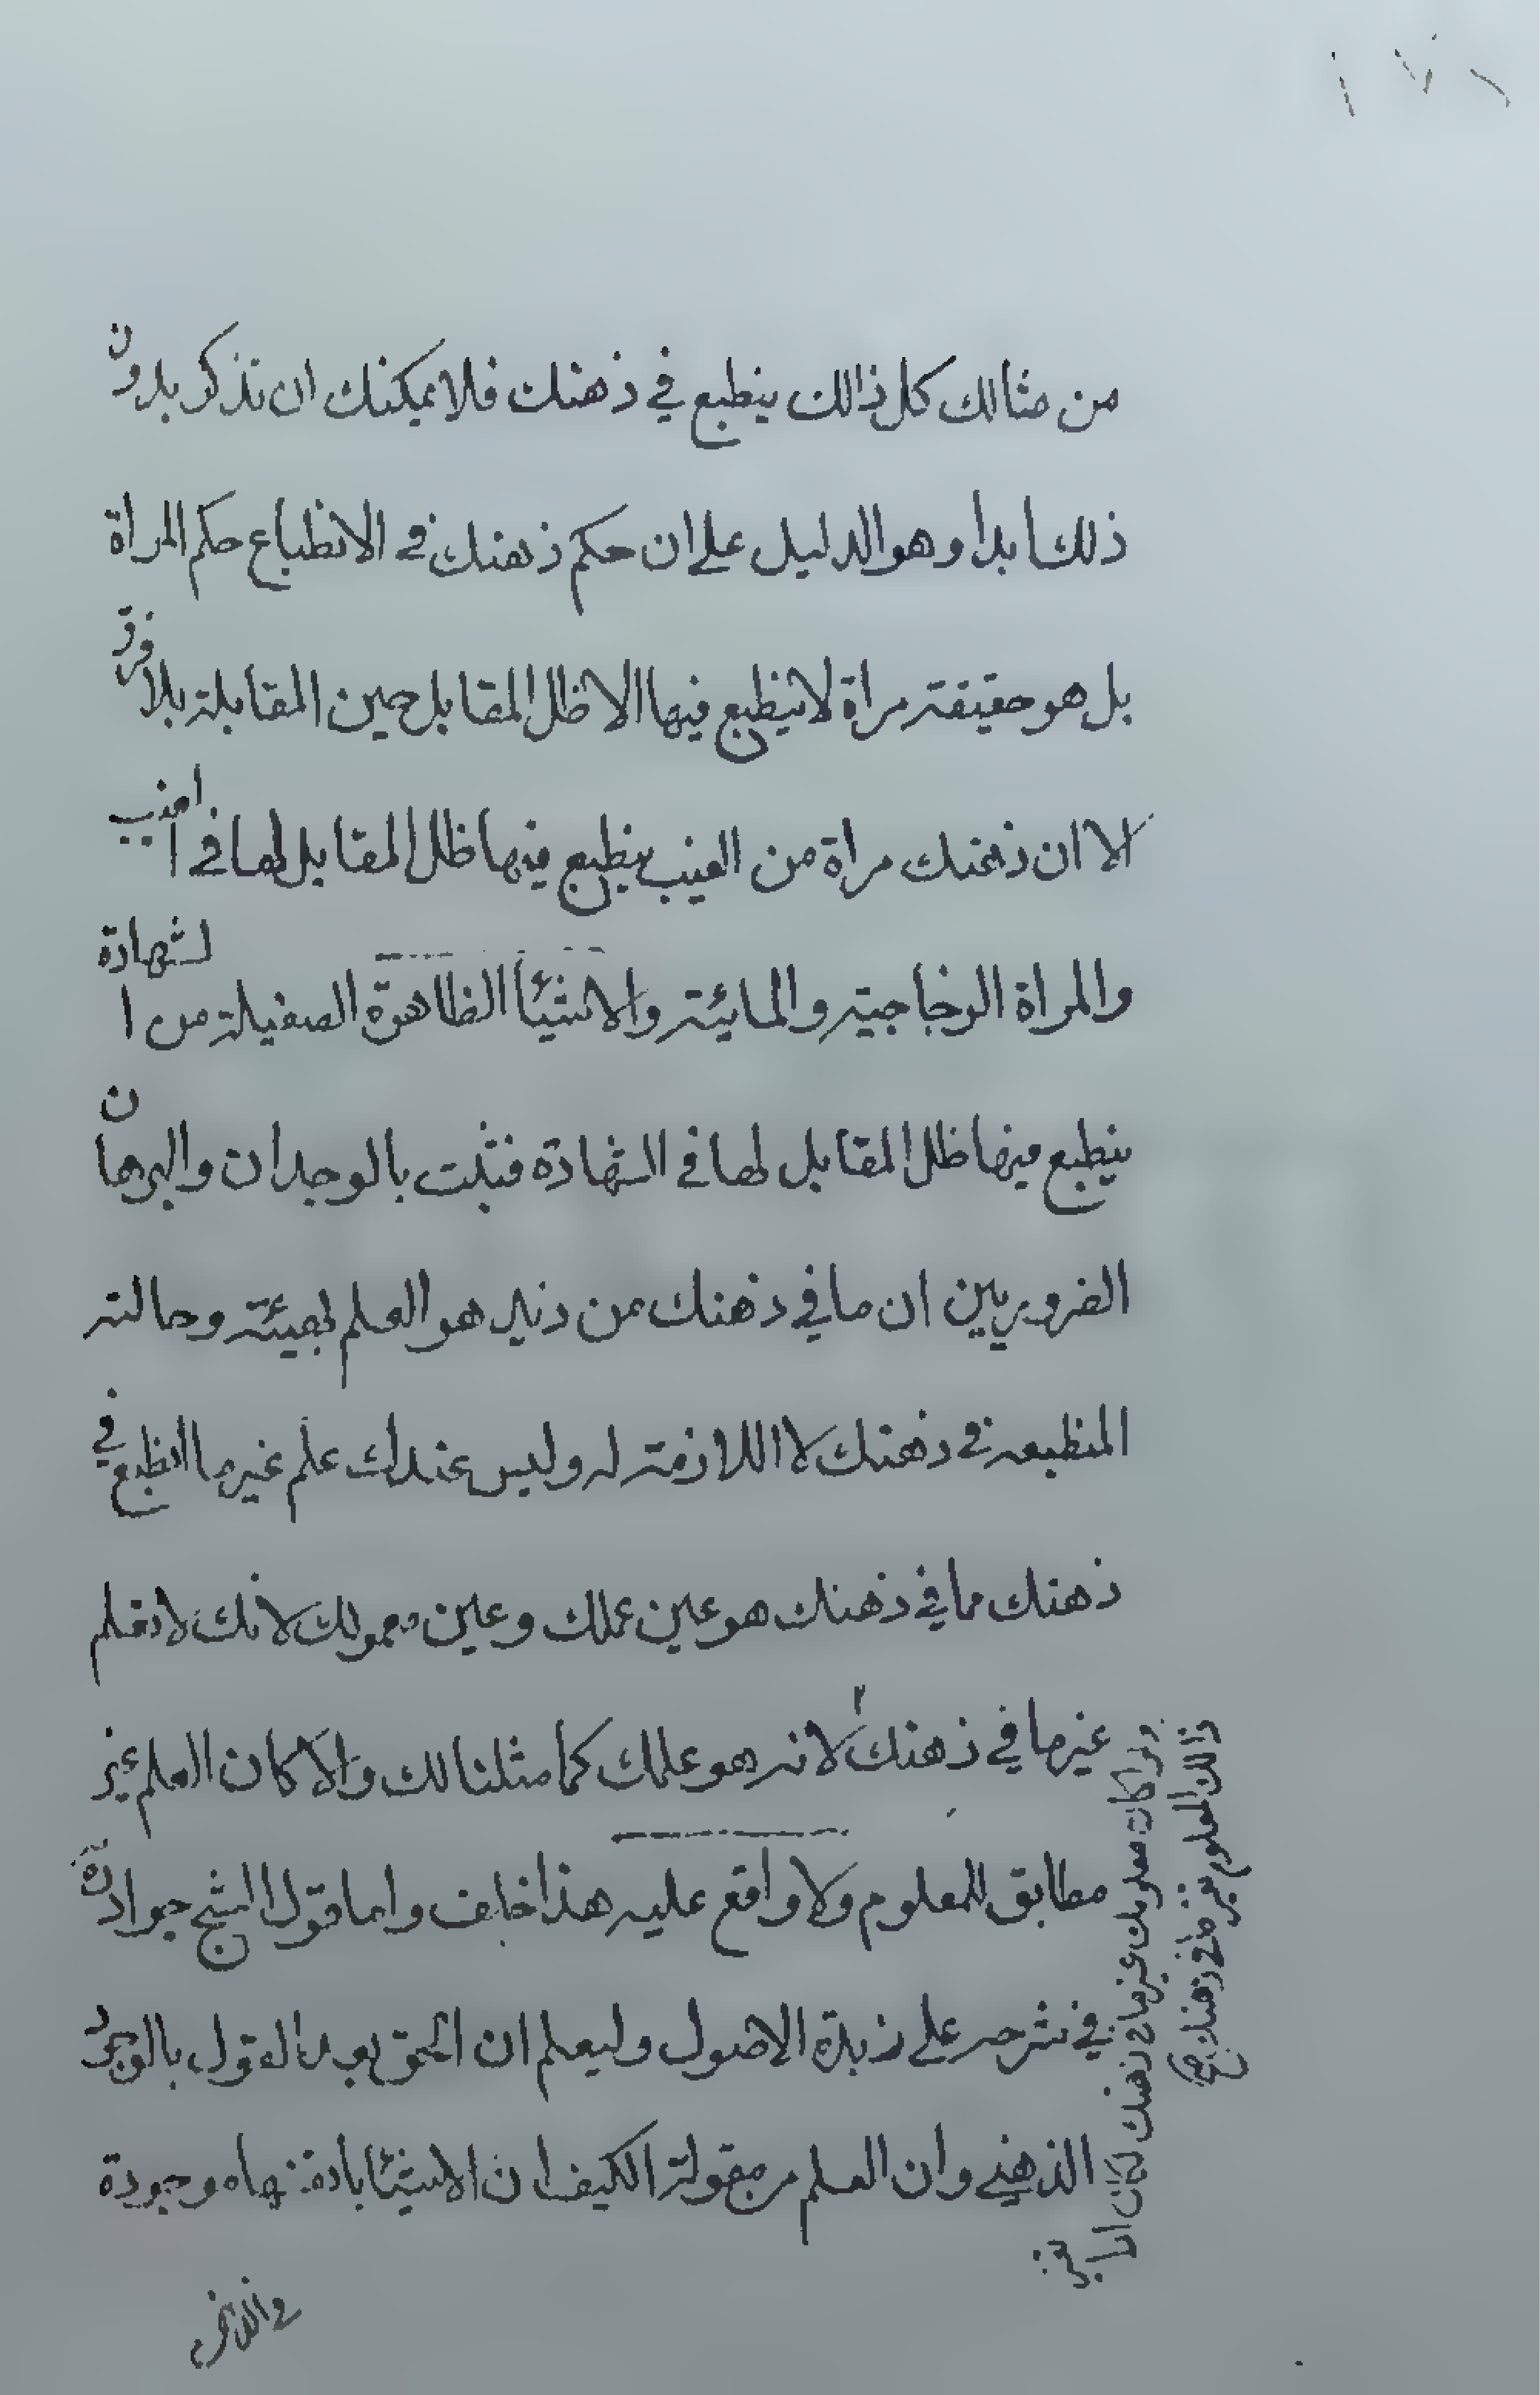 من مثالك كل ذالك ينطبع في ذهنك فلا يمكنك ان تذكر بدون
ذلك ابدا وهو الدليل على ان حكم ذهنك في الانطباع حكم المراة
بل هو حقيقة مراة لا ينطبع فيها الا ظل المقابل حين المقابلة بلا فرق
الا ان ذهنك مراة من الغيب ينطبع فيها ظل المقابل لها في الغيب
والمراة الزجاجية والمائية والاشيأ الظاهرة الصقيلة من الشهادة
ينطبع فيها ظل المقابل لها في الشهادة فثبت بالوجدان والبرهان
الضروريين ان ما في ذهنك من زيد هو العلم بهيئته وحالته
المنطبعه في ذهنك لا اللازمة له وليس عندك علم غير ما انطبع في
ذهنك مما في ذهنك هو عين علمك وعين معلومك لانك لا تعلم
غير ما في ذهنك لانه هو علمك كما مثلنا لك والا كان العلم غير
مطابق للمعلوم ولا واقع عليه هذا خلف واما قول الشيخ جواد ره
في شرحه على زبدة الاصول وليعلم ان الحق بعد القول بالوجود
الذهني وان العلم من مقولة الكيف ان الاشيئا بانفسها موجودة
في الذهن
ولو كان معلومك غير ما في ذهنك لكان
ذلك المعلوم غير ما في ذهنك صح